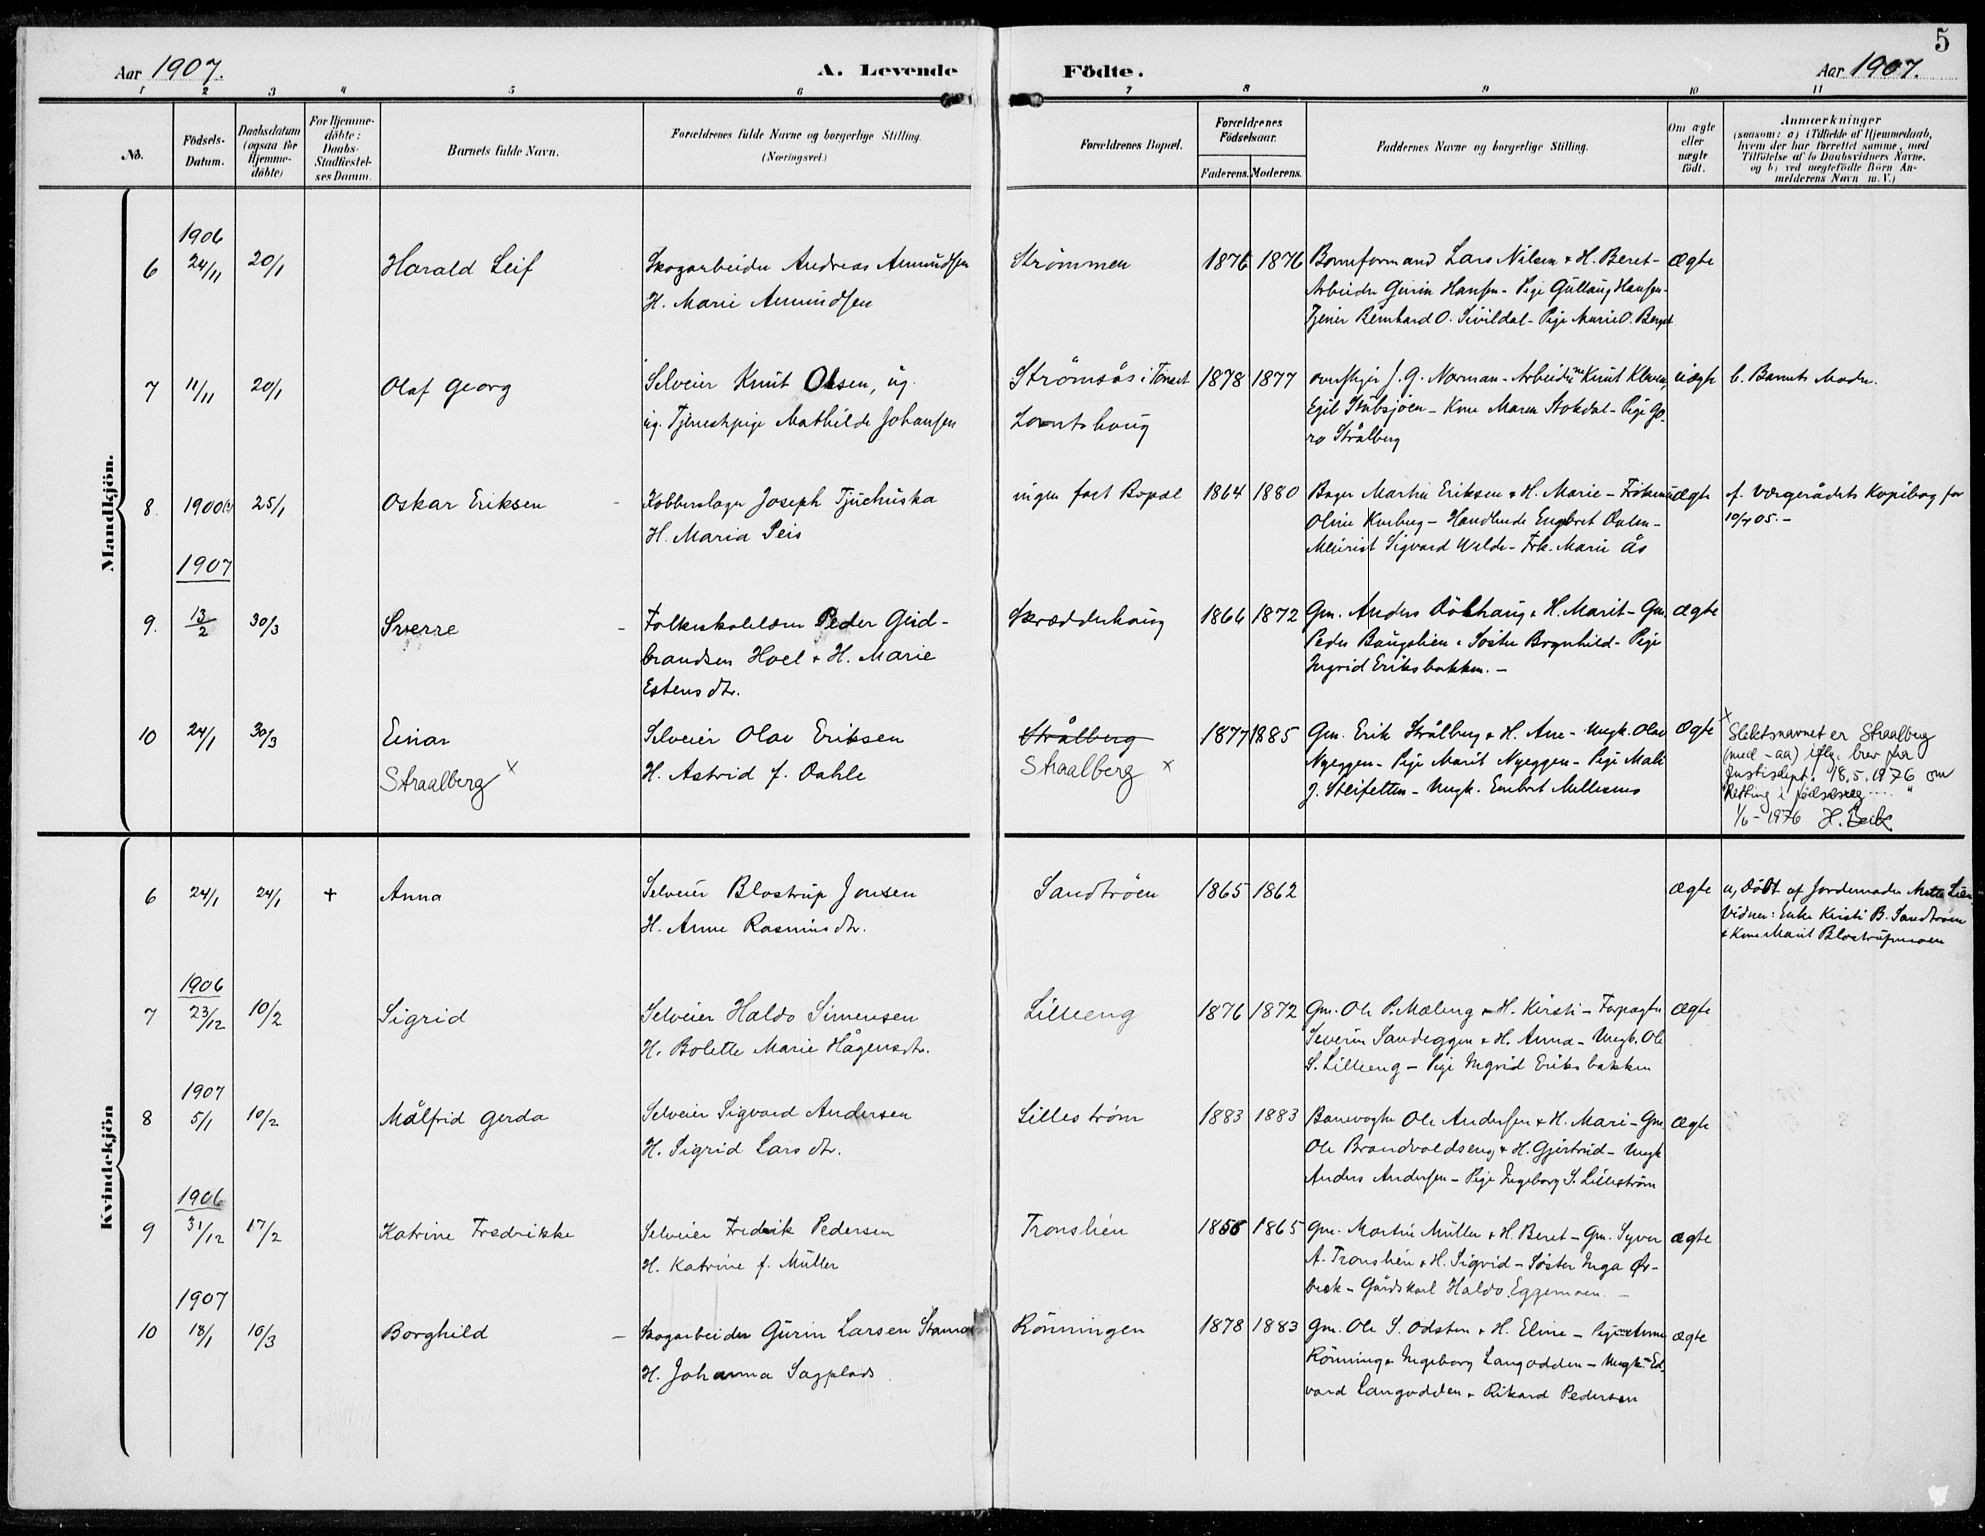 5
Aar 1907.
A. Levende
Födte.
Aar 1907.
1 2 3 4 5 6 7 8 9 10 11
No.
Födsels-
Datum.
Daabsdatum
(ogsaa for
Hjemme-
döbte)
For Hjemme-
döbte:
Daabs-
Stadfæstel-
ses Datum.
Barnets fulde Navn.
Forældrenes fulde Navne og borgerlige Stilling.
(Næringsvei.)
Forældrenes Bopæl.
Forældrenes
Födselsaar.
Faderens. Moderens.
Faddernes Navne og borgerlige Stilling.
Om ægte
eller
uægte
födt.
Anmærkninger
(saasom: a) i Tilfælde af Hjemmedaab,
hvem der har forrettet samme, med
Tilföielse af to Daabsvidners Navne.
og b) ved uægtefödte Börn An-
melderens Navn m. V.)
Mandkjön.
1906
6 24/11 20/1 Harald Leif Skogarbeider Andreas Amundsen
H. Marie Amundsen
Strømmen 1876 1876 Baneformand Lars Nilsen & H. Beret-
Arbeider Gurin Hansen - Pige Gullaug Hansen-
Tjener Bernhard O. Sivildal - Pige Marie O. Berget
Ægte
7 11/11 20/1 Olaf Georg Selveier Knut Olsen, ug.
ug. Tjenestpige Mathilde Johansen
Strömsås i Tönset
Lorntshaug
1878 1877 J. G. Norman - Arbeider Knut Kleven,
Egil Stubsjöen - Kone Maren Stokdal - Pige Go-
ro Strålberg
uægte b. Barnets Moder.
8 1900 25/1 Oskar Eriksen Kobberslager Joseph Tjuchuska
H. Maria Peis
ingen fast Bopæl 1864 1880 Bager Martin Eriksen & H. Marie - Frøken
Oline - Handlende Engebret Dalen -
Meierist Sigvard Wilde - Frk. Marie Ås
uægte f. Værgerådets Kopibog for
10/4 05. -
1907
9. 13/2 30/3 Sverre Folkeskolelærer Peder Guld-
brandsen Hoel & H. Marie
Estensdtr.
Skrædderhaug 1866 1872 Gm. Anders Dölhaug & H. Marit - Gm.
Peder Bangslien & Søster Brynhild - Pige
Ingrid Eriksbakken. -
Ægte
10 24/1 30/3 Einar
Straalberg x
Selveier Olav Eriksen
H. Astrid f. Dahle
Strålberg
Straalberg x
1877 1885 Gm. Erik Strålberg & H. Ane - Ungk. Olav
Nyeggen - Pige Marit Nyeggen - Pige Mali
J. Steifetten - Ungk. Embret Mellesmo
Ægte
x Slektsnavnet er Straalberg
(med -aa) iflg. brev fra
Justisdept. 18.5.1976 om
"Retting i fødselsreg .... "
1/6 - 1976 H. Beck
Kvindekjön
6 24/1 24/1 + Anna Selveier Blostrup Jonsen
H. Anne Rasmusdtr.
Sandtrøen 1865 1862 Ægte a, Döbt af Jordemoder Lien
Vidner: Enke Kirsti B. Sandtrøen
& Kone Marit Blostrupmoen
1906
7 23/12 10/2 Sigrid Selveier Haldo Simensen
H. Bolette Marie Hågensdtr.
Lilleeng 1876 1872 Gm. Ole P. Mæleng & H. Kirsti - Forpagter
Severin Sandeggen & H. Anna - Ungk. Ole
S. Lilleeng - Pige Ingrid Eriksbakken
Ægte
1907
8 5/1 10/2 Målfrid Gerda Selveier Sigvard Andersen
H. Sigrid Larsdtr.
Lillestrøm 1883 1883 Banevogter Ole Andersen & H. Mari - Gm
Ole Brandvoldseng & H. Gjertrud - Ungk
Anders Andersen - Pige Ingeborg S. Lilleström
Ægte
1906
9 31/12 17/2 Katrine Fredrikke Selveier Fredrik Pedersen
H. Katrine f. Müller
Tronslien 1856 1865 Gm. Martin Müller & H. Beret - Gm. Syver
A. Tronslien & H. Sigrid - Søster Inga Ør-
beck - Gårdskarl Haldo Eggemoen. -
Ægte
1907
10 18/1 10/3 Borghild Skogarbeider Gurin Larsen
H. Johanna Sagplads
Rönningen 1878 1883 Gm. Ole S. Odsten & H. Eline - Pige Anne
Rönning & Ingeborg Langodden - Ungk. Ed-
vard Langodden & Rikard Pedersen
Ægte